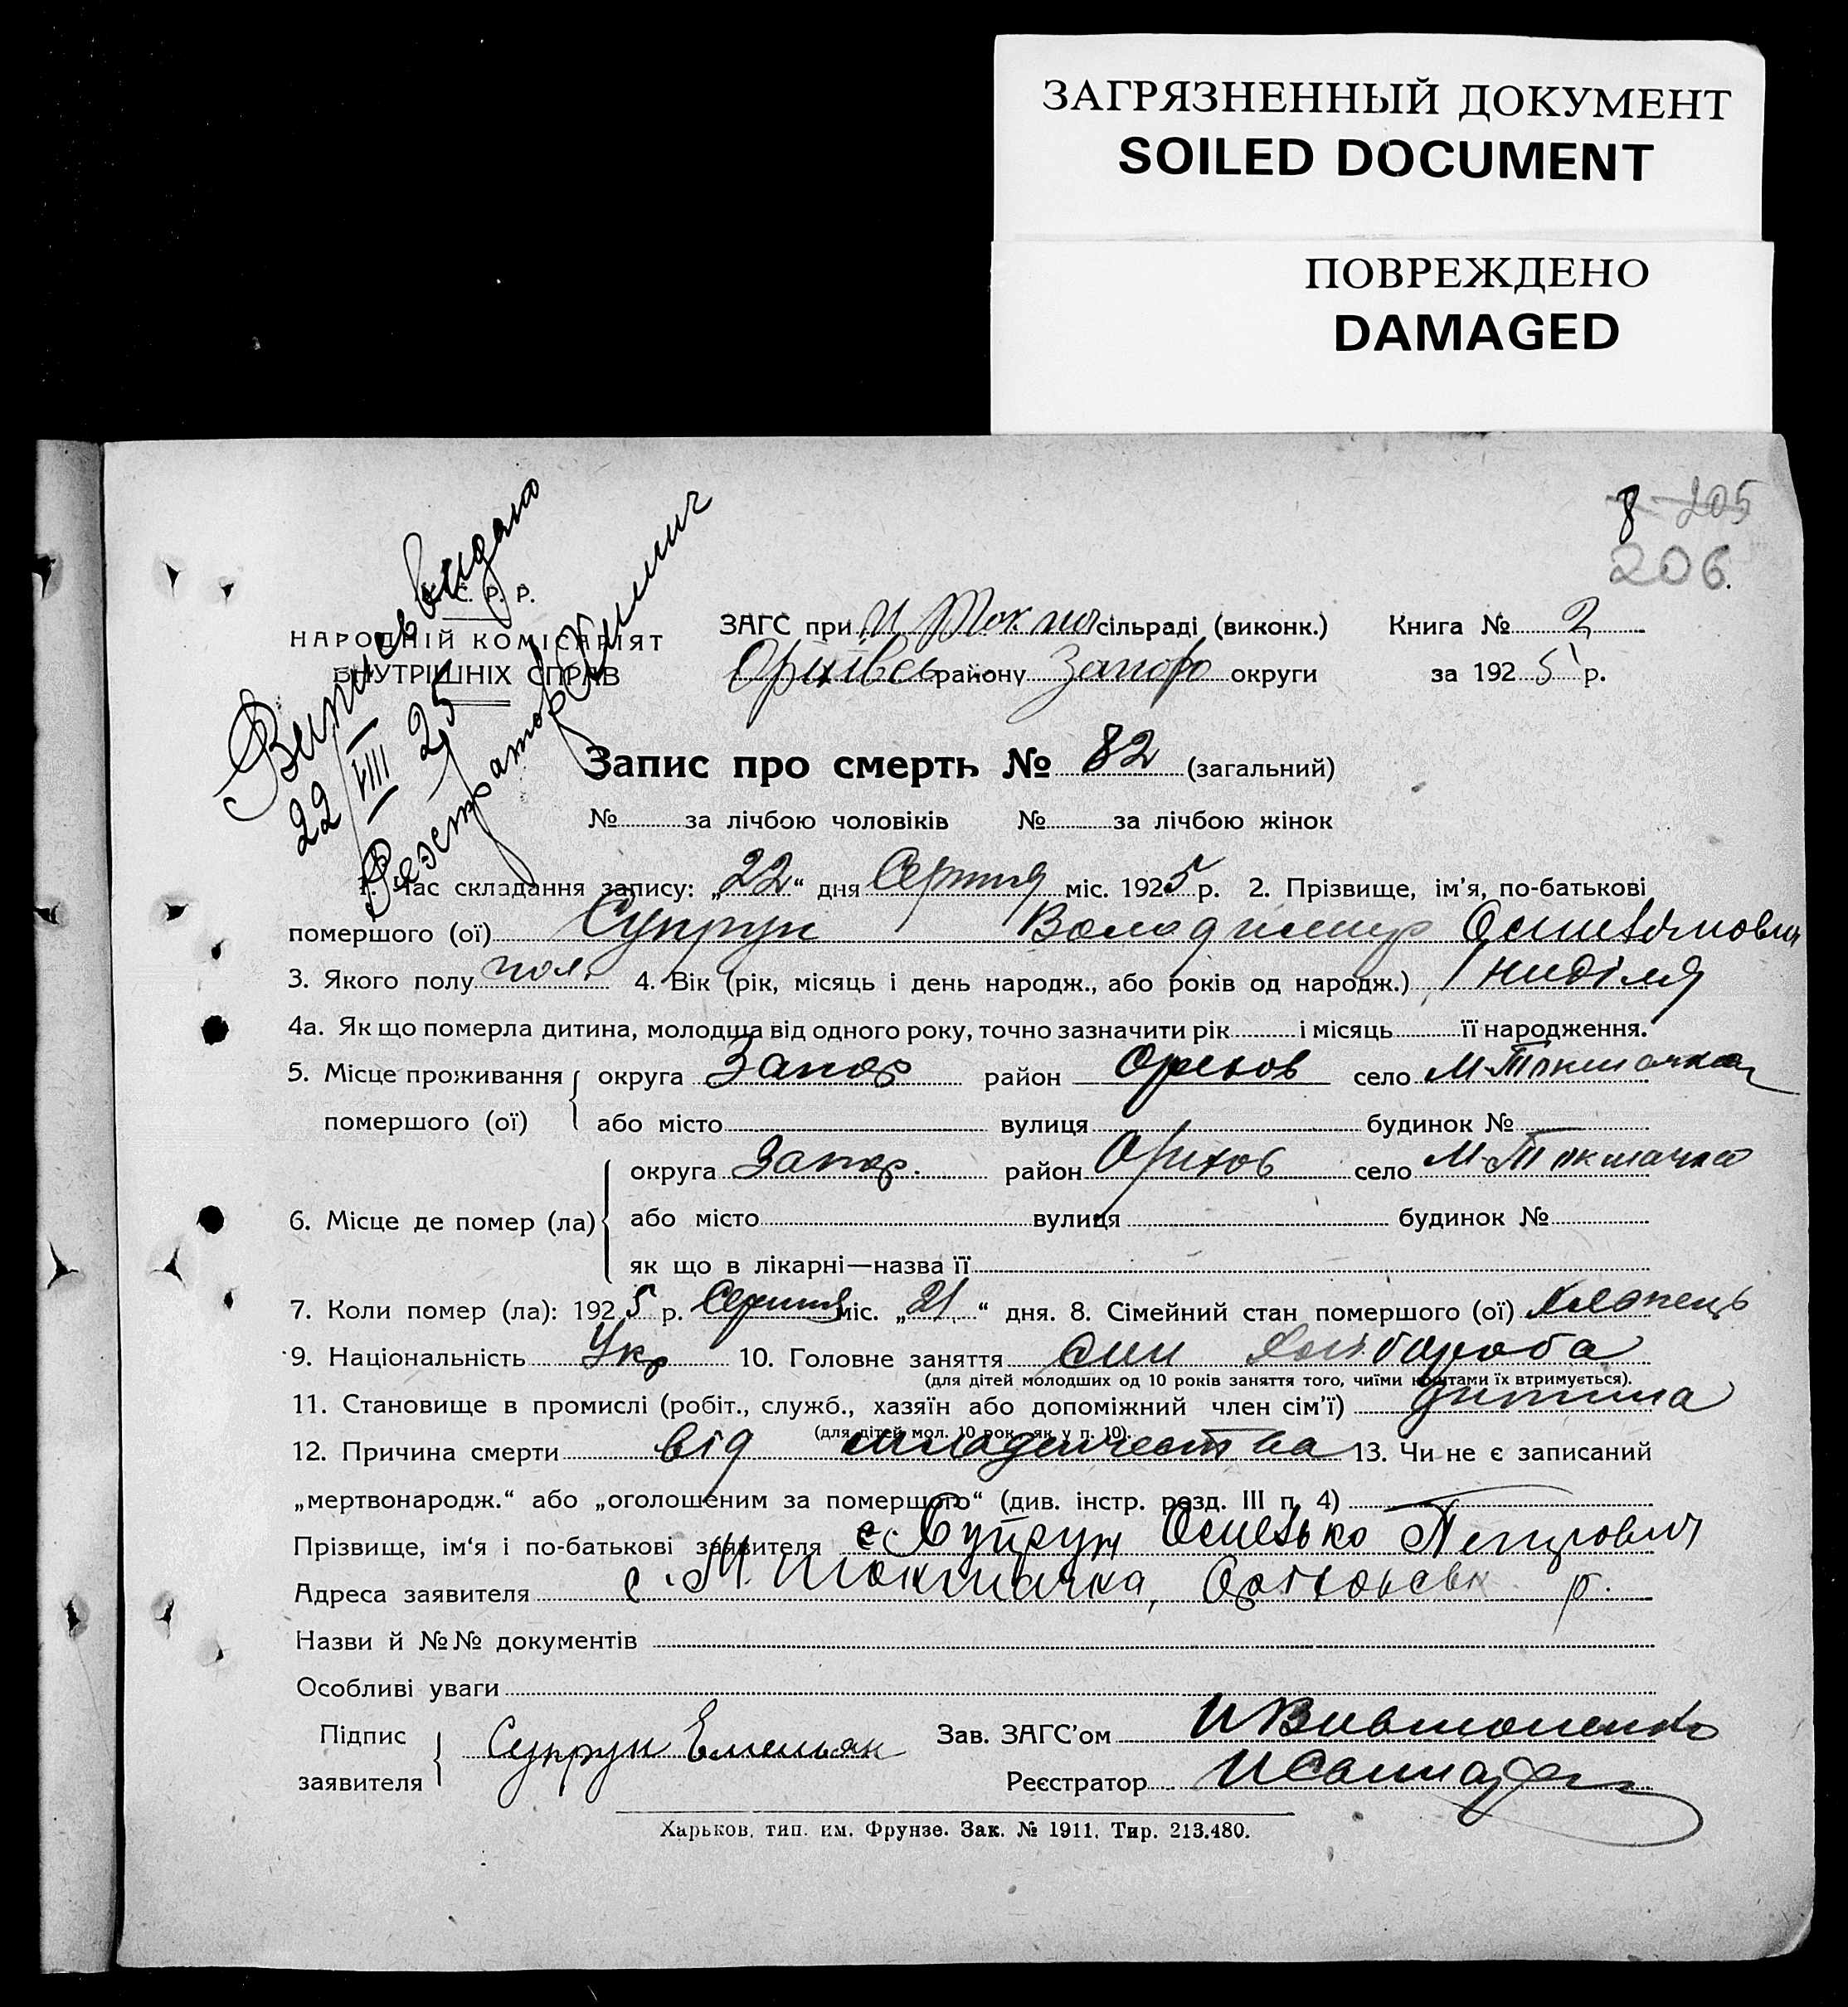 ЗАГРЯЗНЕННЫЙ ДОКУМЕНТ
SOILED DOCUMENT
ПОВРЕЖДЕНО
DAMAGED
8 205
206.
Выпись видано
22/VIII 25
С. Р. Р.
НАРОДНІЙ КОМІСАРІЯТ
ВНУТРІШНІХ СПРАВ
ЗАГС при сільраді (виконк.) Книга № 2
району Запор округи за 1925 р.
Запис про смерть № 82 (загальний)
№ за лічбою чоловіків № за лічбою жінок
1. Час складання запису: „22“ дня Серпня міс. 1925 р. 2. Прізвище, ім'я, по-батькові
помершого (ої) Супрун Володимир
3. Якого полу чол. 4. Вік (рік, місяць і день народж., або років од народж.) 1 ниділя
4а. Як що померла дитина, молодша від одного року, точно зазначити рік і місяць її народження.
5. Місце проживання округа Запор район Орехов село М-Токмачка
помершого (ої) або місто вулиця будинок №
округа Запор. район Орихов село М-Токмачка
6. Місце де помер (ла) або місто вулиця будинок №
як що в лікарні—назва її
7. Коли помер (ла): 1925 р. Серпня міс. „21“ дня. 8. Сімейний стан помершого (ої) хлопець
9. Національність Укр 10. Головне заняття син хлібороба
(для дітей молодших од 10 років заняття того, чиїми коштами їх втримується).
11. Становище в промислі (робіт., служб., хазяїн або допоміжний член сім'ї) дитина
(для дітей мол. 10 рок. як у п. 10).
12. Причина смерти від младенчества 13. Чи не є записаний
„мертвонародж.“ або „оголошеним за помершого“ (див. інстр. розд. III п. 4)
Прізвище, ім'я і по-батькові заявителя Супрун Петрович
Адреса заявителя с. М. Токмачка, р.
Назви й №№ документів
Особливі уваги
Підпис заявителя Супрун Емельян Зав. ЗАГС'ом
Реєстратор
Харьков, тип. им. Фрунзе. Зак. № 1911. Тир. 213.480.